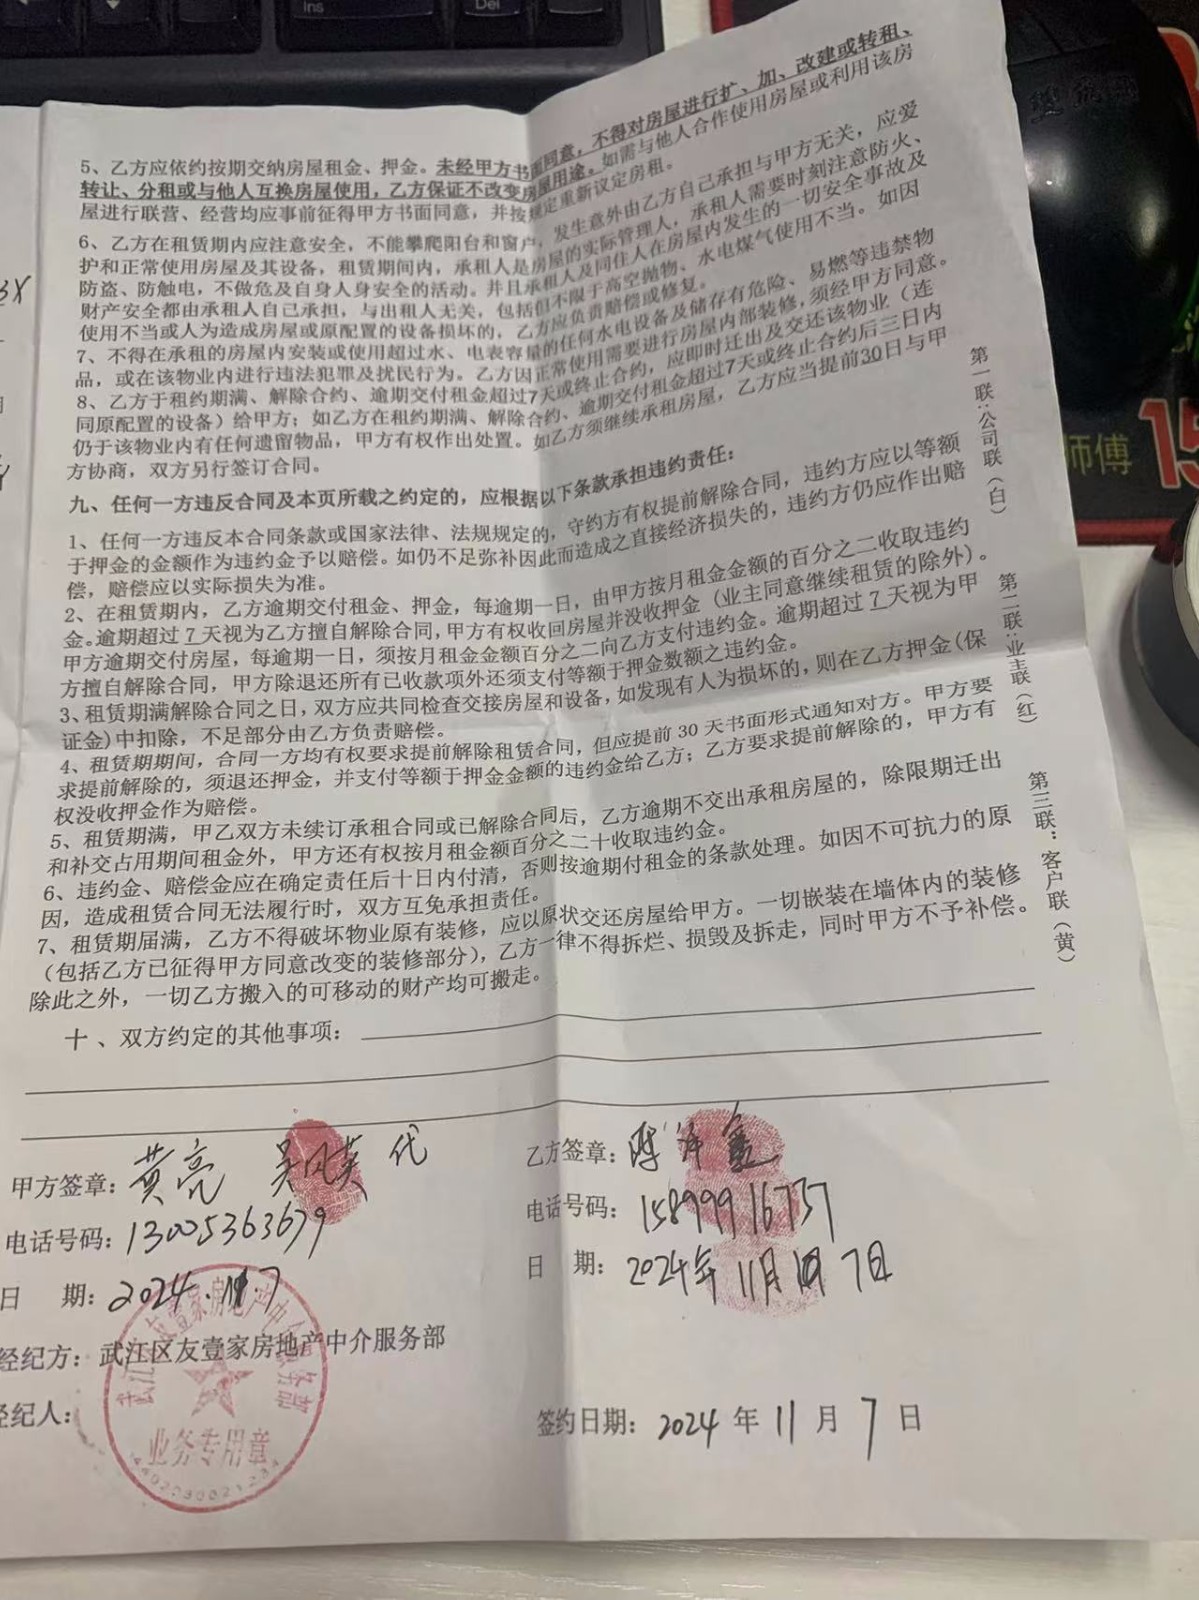 Ins
Del
5、乙方应依约按期交纳房屋租金、押金。未经甲方书面同意，不得对房屋进行扩、加、改建或转租、
转让、分租或与他人互换房屋使用，乙方保证不改变房屋用途。如需与他人合作使用房屋或利用该房
屋进行联营、经营均应事前征得甲方书面同意，并按规定重新议定房租。
6、乙方在租赁期内应注意安全，不能攀爬阳台和窗户，发生意外由乙方自己承担与甲方无关，应爱
护和正常使用房屋及其设备，租赁期间内，承租人是房屋的实际管理人，承租人需要时刻注意防火、
防盗、防触电，不做危及自身人身安全的活动。并且承租人及同住人在房屋内发生的一切安全事故及
财产安全都由承租人自己承担，与出租人无关，包括但不限于高空抛物、水电煤气使用不当。如因
使用不当或人为造成房屋或原配置的设备损坏的，乙方应负责赔偿或修复。
7、不得在承租的房屋内安装或使用超过水、电表容量的任何水电设备及储存有危险、易燃等违禁物
品，或在该物业内进行违法犯罪及扰民行为。乙方因正常使用需要进行房屋内部装修，须经甲方同意。
8、乙方于租约期满、解除合约、逾期交付租金超过7天或终止合约，应即时迁出及交还该物业（连
同原配置的设备）给甲方；如乙方在租约期满、解除合约、逾期交付租金超过7天或终止合约后三日内
仍于该物业内有任何遗留物品，甲方有权作出处置。如乙方须继续承租房屋，乙方应当提前30日与甲
方协商，双方另行签订合同。
九、任何一方违反合同及本页所载之约定的，应根据以下条款承担违约责任：
1、任何一方违反本合同条款或国家法律、法规规定的，守约方有权提前解除合同，违约方应以等额
于押金的金额作为违约金予以赔偿。如仍不足弥补因此而造成之直接经济损失的，违约方仍应作出赔
偿，赔偿应以实际损失为准。
2、在租赁期内，乙方逾期交付租金、押金，每逾期一日，由甲方按月租金金额的百分之二收取违约
金。逾期超过 7 天视为乙方擅自解除合同，甲方有权收回房屋并没收押金（业主同意继续租赁的除外）。
甲方逾期交付房屋，每逾期一日，须按月租金金额百分之二向乙方支付违约金。逾期超过 7 天视为甲
方擅自解除合同，甲方除退还所有已收款项外还须支付等额于押金数额之违约金。
3、租赁期满解除合同之日，双方应共同检查交接房屋和设备，如发现有人为损坏的，则在乙方押金(保
证金)中扣除，不足部分由乙方负责赔偿。
4、租赁期期间，合同一方均有权要求提前解除租赁合同，但应提前 30 天书面形式通知对方。甲方要
求提前解除的，须退还押金，并支付等额于押金金额的违约金给乙方；乙方要求提前解除的，甲方有
权没收押金作为赔偿。
5、租赁期满，甲乙双方未续订承租合同或已解除合同后，乙方逾期不交出承租房屋的，除限期迁出
和补交占用期间租金外，甲方还有权按月租金额百分之二十收取违约金。
6、违约金、赔偿金应在确定责任后十日内付清，否则按逾期付租金的条款处理。如因不可抗力的原
因，造成租赁合同无法履行时，双方互免承担责任。
7、租赁期届满，乙方不得破坏物业原有装修，应以原状交还房屋给甲方。一切嵌装在墙体内的装修
（包括乙方已征得甲方同意改变的装修部分），乙方一律不得拆烂、损毁及拆走，同时甲方不予补偿。
除此之外，一切乙方搬入的可移动的财产均可搬走。
十、双方约定的其他事项：
第一联：公司联（白）
第二联：业主联（红）
第三联：客户联（黄）
甲方签章：黄亮 吴凤英 代
电话号码：13005363679
日 期：2024.11.7
经纪方：武江区友壹家房地产中介服务部
经纪人：
业务专用章
乙方签章：
电话号码：15899916757
日 期：2024年11月7日
签约日期：2024 年 11 月 7 日
师傅
15